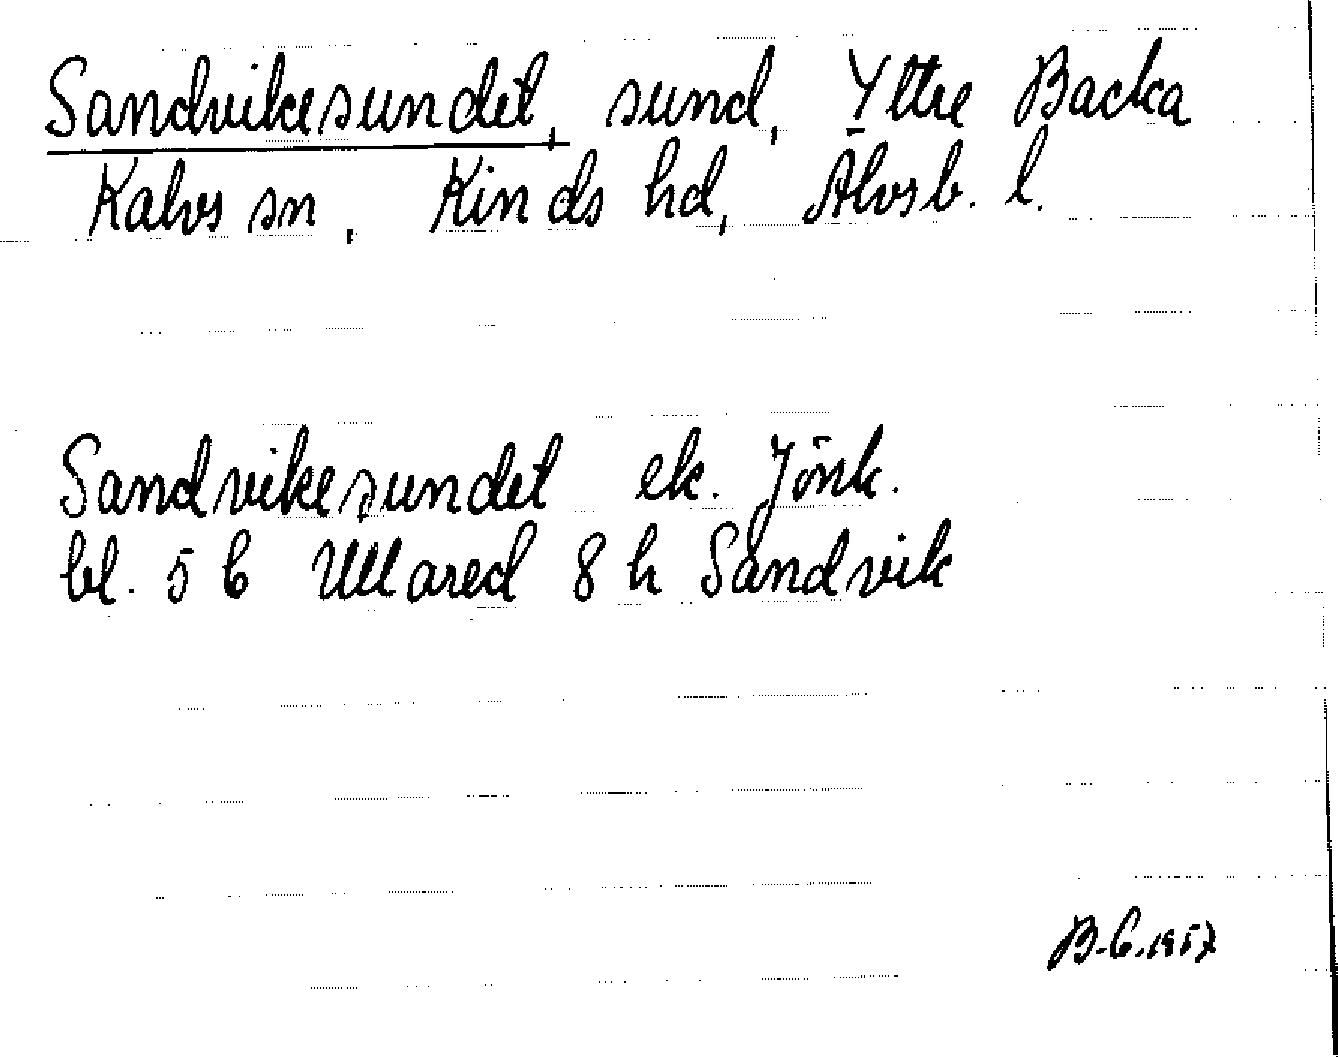 Sandvikesundet, sund, Yttre Backa
Kalvs sn, Kinds hd, Älvsb. l.
Sandvikesundet ek. Jönk.
bl. 5 6 Ullared 8 h Sandvik
B.C. 1957